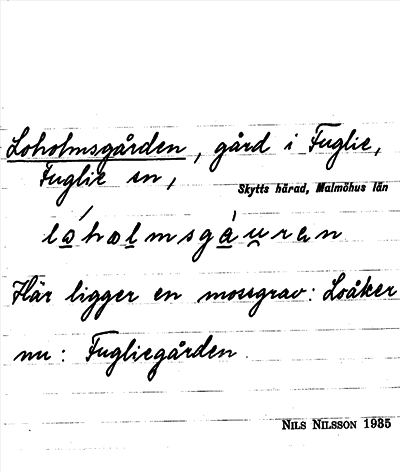 Loholmsgården, gård i Fuglie,
Fuglie sn,
Skytts härad, Malmöhus län
lóholmsgáuran
Här ligger en mosegrav: Loåker
nu: Fugliegården
NILS NILSSON 1935